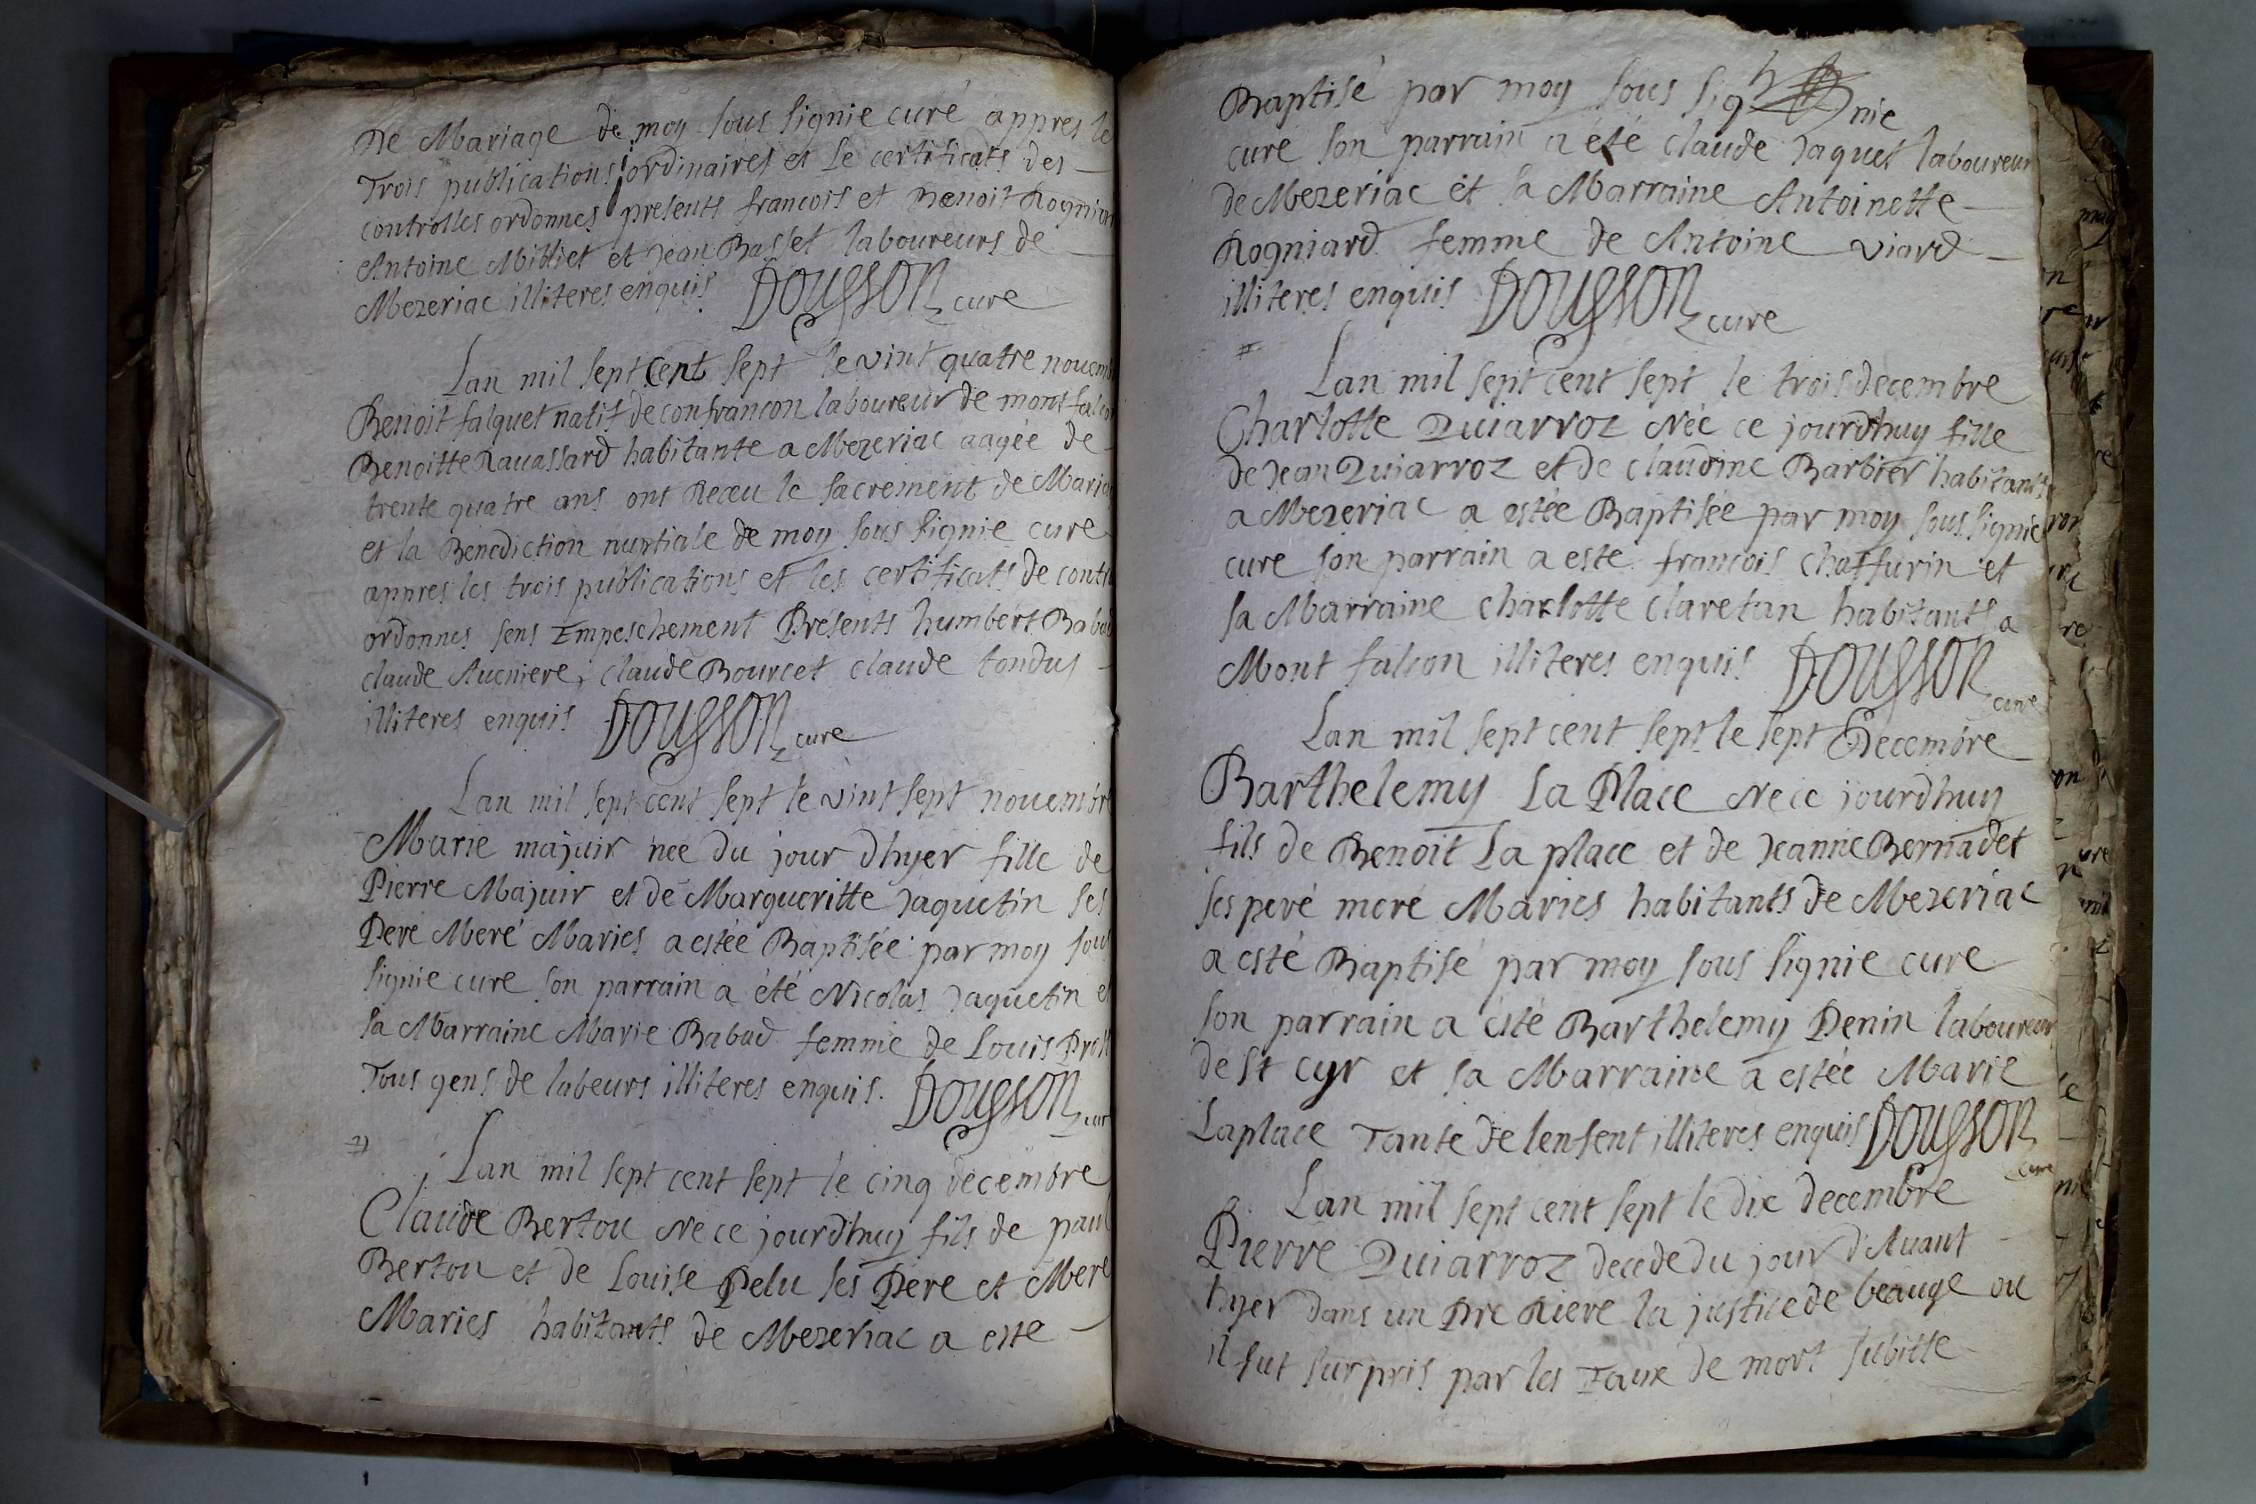 De Mariage de moy sous signie curé appres le
Trois publications ordinaires et le certificats des
controlles ordonnes presents francois et Benoit Rogniar
Antoine Milliet et Jean Basset laboureurs de
Mezeriac illiteres enquis DOUSSON cure
Lan mil sept Cent sept le vint quatre nouemb
Benoit falquet natif de confrancon laboureur de mont falcon
Benoitte Rauassard habitante a Mezeriac aagée de
trente quatre ans ont Receu le sacrement de Maria
et la Benediction nuptiale de moy sous signie cure
appres les trois publications et les certificats de contr
ordonnes sens Empeschement Présents humbert Babad
claude Aucniere, claude Bourcet claude tondus
illiteres enquis DOUSSON cure
Lan mil sept cent sept le vint sept nouembre
Marie majuir née du jour dhyer fille de
Pierre Majuir et de Margueritte Jaquetin ses
Pere Meré Maries a estée Baptisée par moy sous
signie cure son parrain a été Nicolas Jaquetin et
sa Marraine Marie Babad femme de Louis Prost
Tous gens de labeurs illiteres enquis. DOUSSON cur
Lan mil sept cent sept le cinq decembre
Claude Bertou Ne ce jourdhuy fils de paul
Bertou et de Louise Pelu ses Pere et Mere
Maries habitants de Mezeriac a este
Baptisé par moy sous sig nie
curé son parrain a été claude Jaquet laboureur
de Mezeriac et sa Marraine Antoinette
Rogniard femme de Antoine viard
illiteres enquis DOUSSON cure
Lan mil sept cent sept le trois decembre
Charlotte Quiarroz Née ce jourdhuy fille
de Jean Quiarroz et de claudine Barbier habitants
a Mezeriac a estée Baptisée par moy sous signie
cure son parrain a esté francois chaffurin et
sa Marraine charlotte claretan habitants a
Mont falcon illiteres enquis DOUSSON cure
Lan mil sept cent sept le sept Decembre
Barthelemy La Place Ne ce jourdhuy
fils de Benoit La place et de Jeanne Bernadet
ses peré meré Maries habitants de Mezeriac
a esté Baptisé par moy sous signie cure
son parrain a esté Barthelemy Penin laboureur
de st cyr et sa Marraine a estée Marie
Laplace Tante de lensent illiteres enquis DOUSSON cure
Lan mil sept cent sept le dix decembre
Pierre Quiarroz decede du jour d'Auant
hyer dans un Pre Riere la justice de beauge ou
il fut surpris par les Eaux de mort subitte